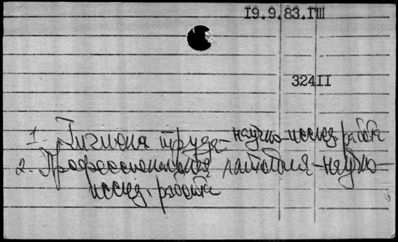 19.9.83.ГШ
324II
1. Гигиена труда - научно-исслед. работа
2. Профессиональная патология - научно-
исслед. работа